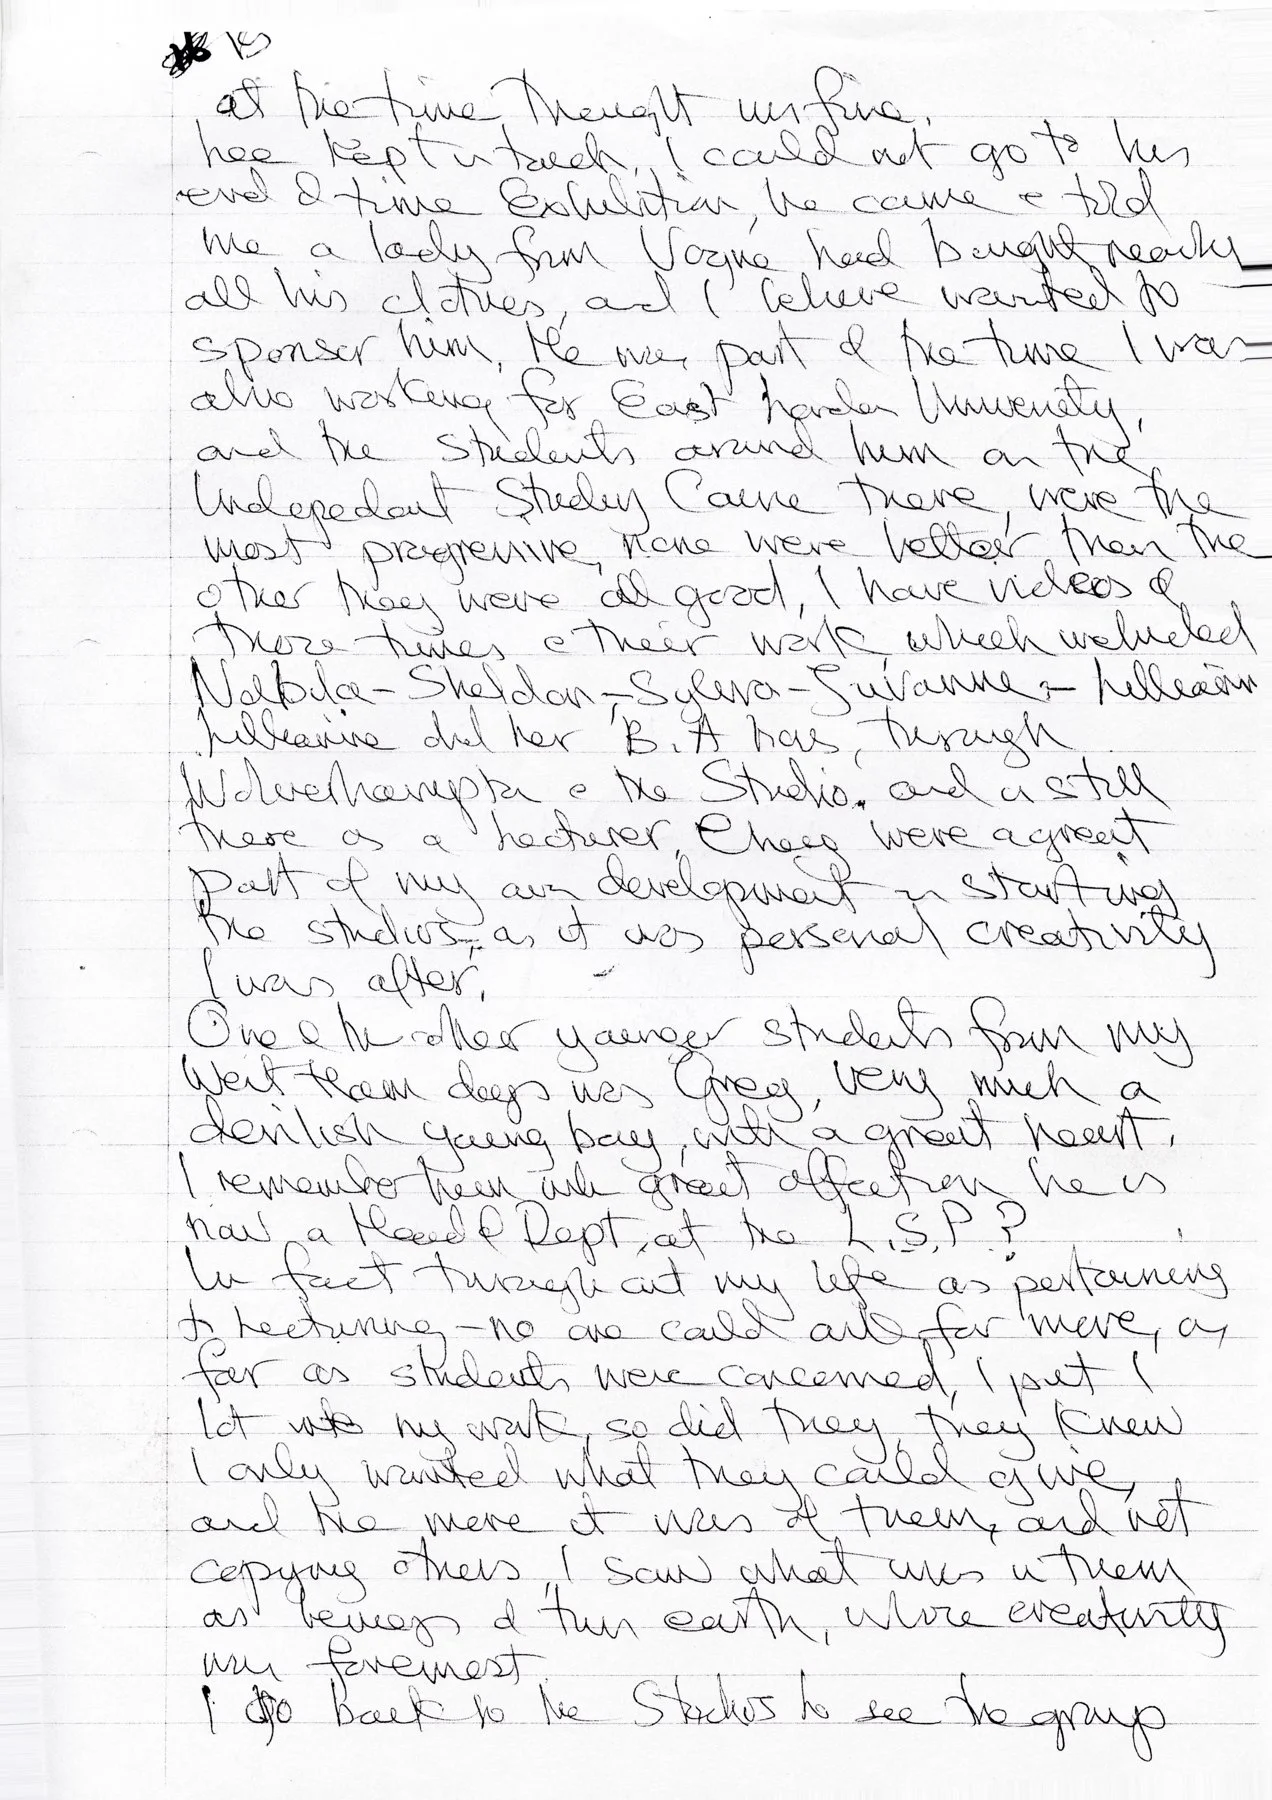 15
at the time thought was fine.
has kept in touch, I could not go to his
end of time Exhibition, he came & told
me a lady from Vogue had bought nearly
all his clothes, and I believe wanted to
sponser him. He was part of the time I was
also working for East London University,
and the Students around him on the
Independant Study Course there, were the
most progressive, none were better than the
other they were all good, I have videos of
those times & their work, which included
Sheldon - Sylvia - Suzanne -
did her B.A Hons, through
Wolverhampton & the Studio. and is still
there as a Lecturer. They were a great
part of my own development in starting
the studios, as it was personal creativity
I was after.
One of the other younger students from my
West Ham days was Greg, very much a
devilish young boy, with a great heart.
I remember him with great affection he is
now a Head of Dept, at the L.S.P?
In fact throughout my life as pertaining
to Lecturing - no one could ask for more, as
far as students were concerned, I put I
lot into my work, so did they, they knew
I only wanted what they could give,
and the more it was of them, and not
copying others, I saw what was in them
as beings of this earth, whose creativity
was foremost.
I go back to the Studios to see the group